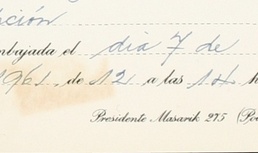 ición
mbajada el día 7 de
1961. de 12 a las 14 h
Presidente Masarik 275 (Po